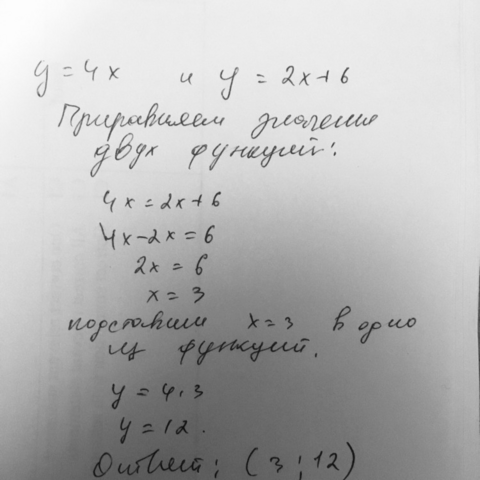 y = 4x и y = 2x+6
Приравняем значение
двух функций:
4x = 2x+6
4x-2x = 6
2x = 6
x = 3
подставим x = 3 в одно
из функций.
y = 4·3
y = 12.
Ответ: (3;12)